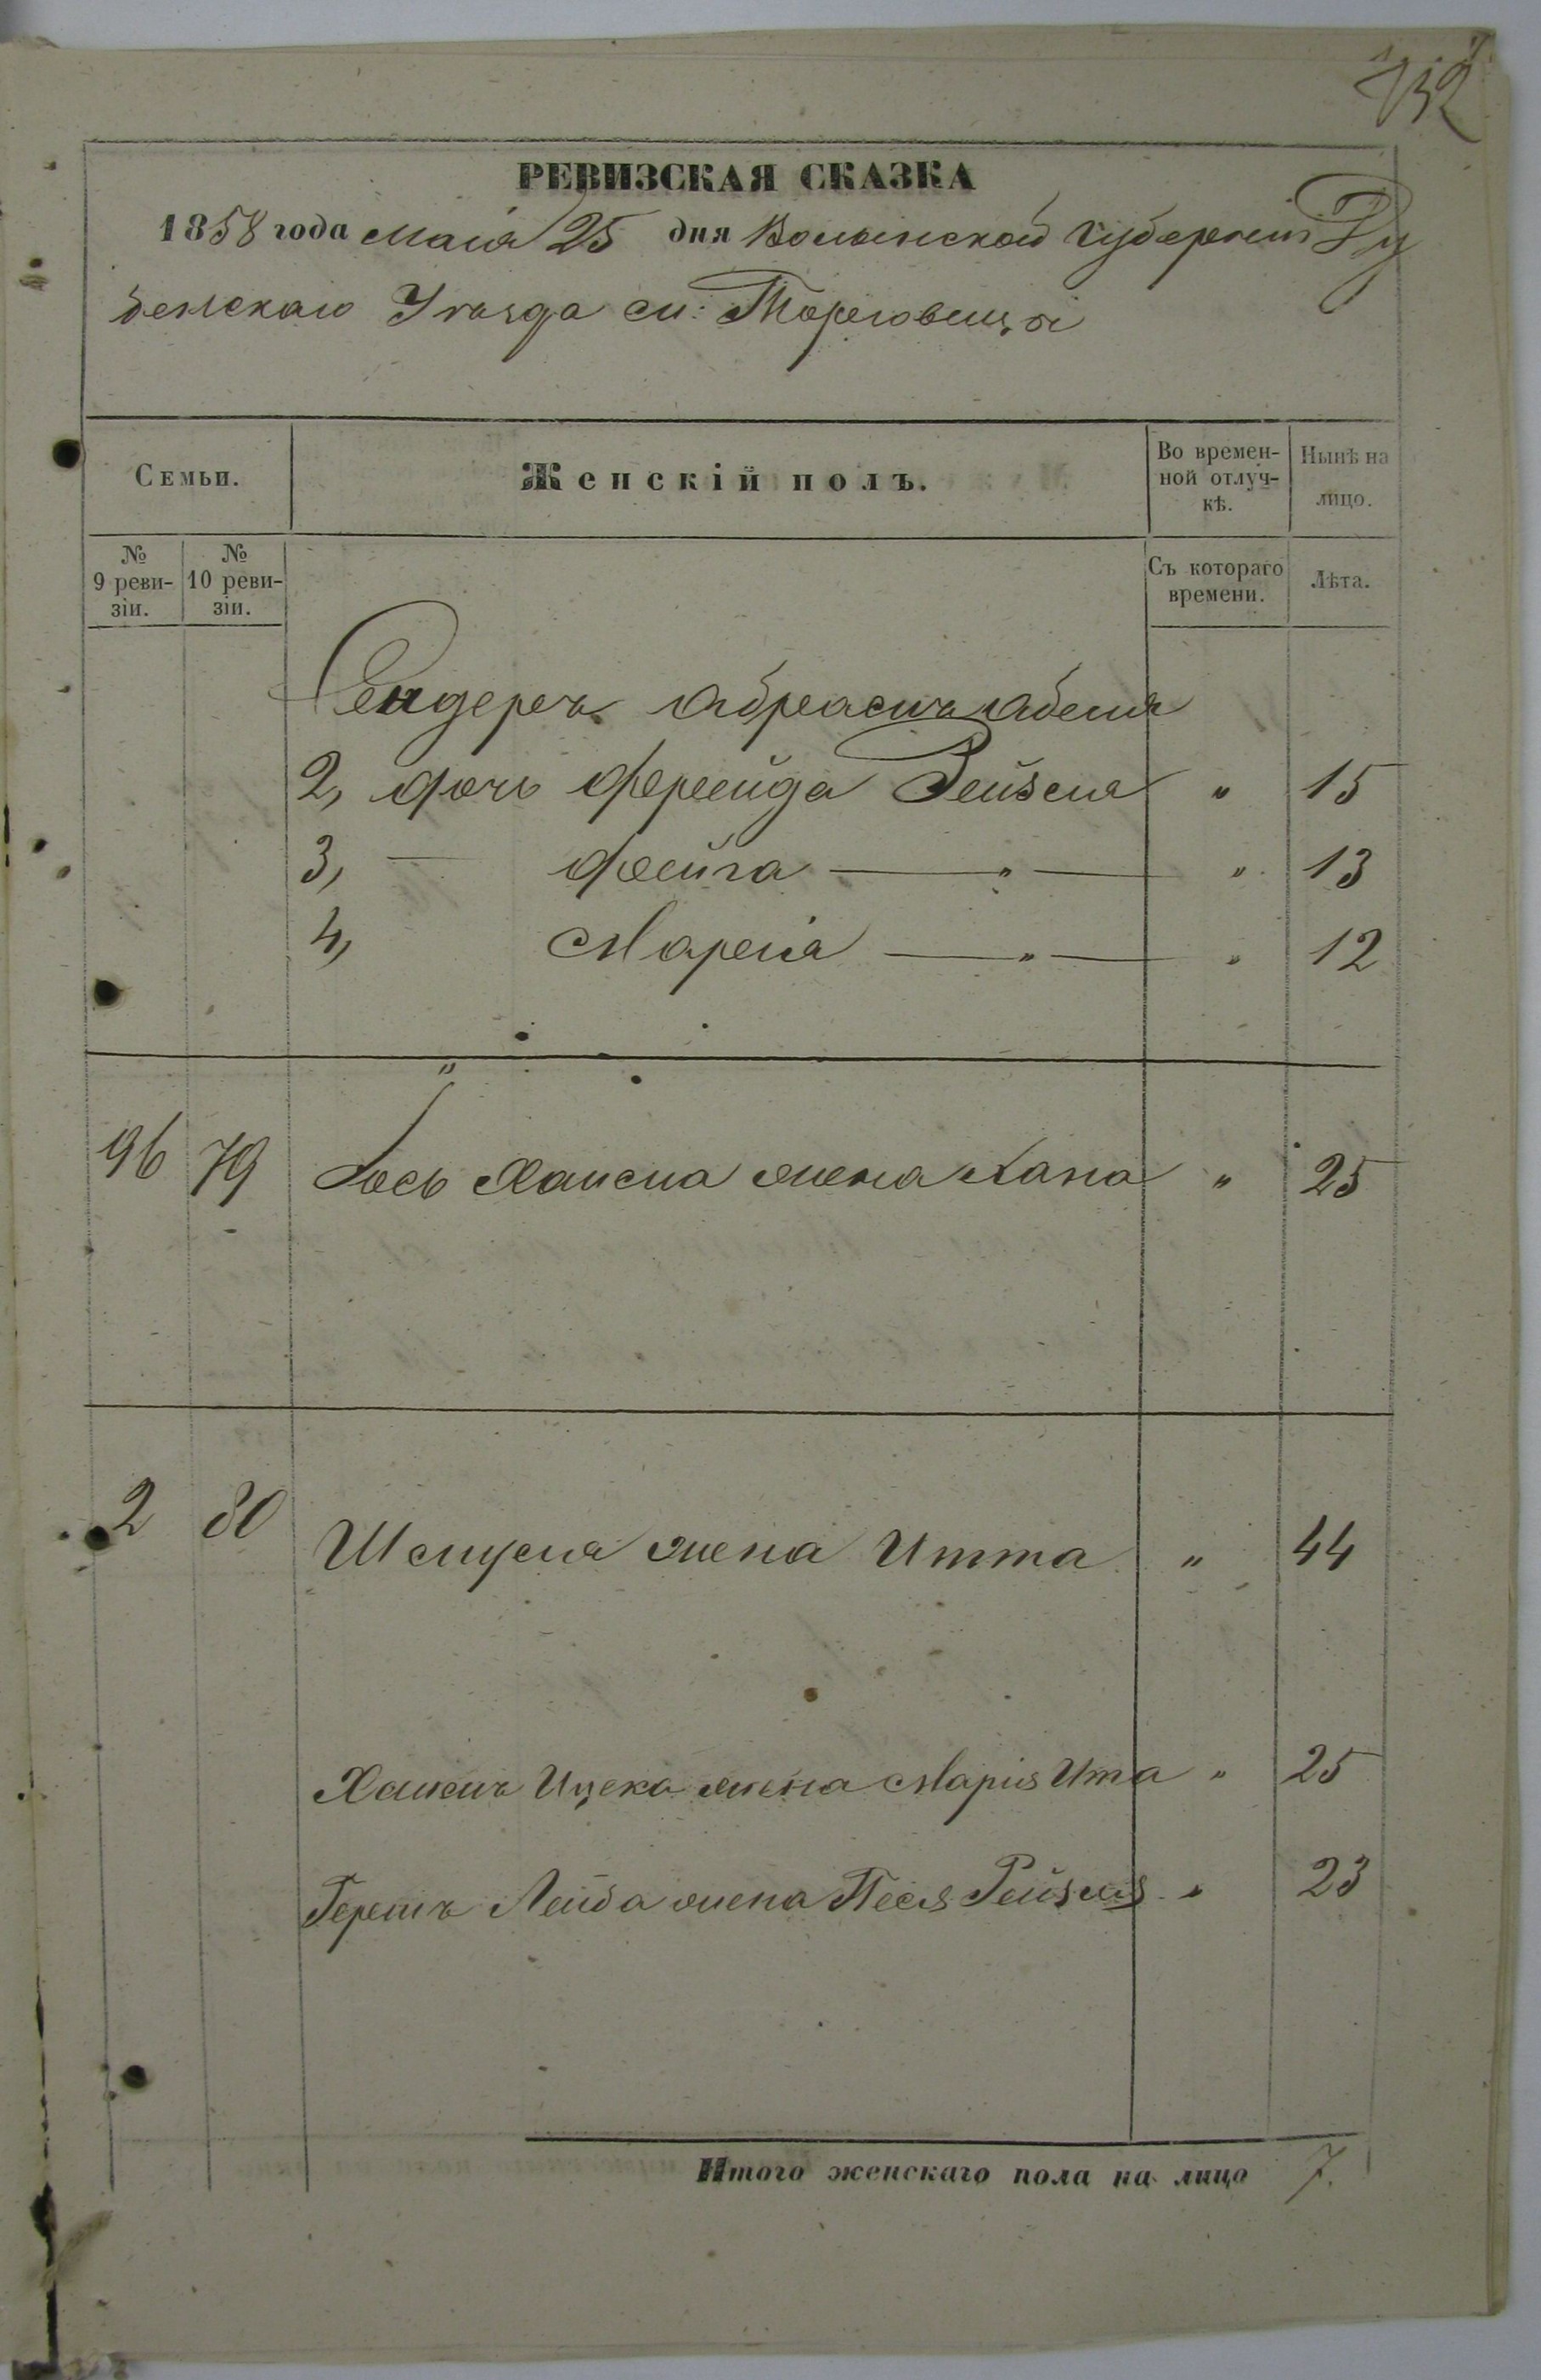 132
РЕВИЗСКАЯ СКАЗКА
1858 года Маія 25 дня Волынской Губерніи Ду
бенскаго Уѣзда м: Торговицы
Семьи.
Женскій полъ.
Во времен-
ной отлуч-
кѣ.
Нынѣ на
лицо.
№
9 реви-
зіи.
№
10 реви-
зіи.
Съ котораго
времени.
Лѣта.
Сендеръ Абрамъ Абеля
2, дочь Фрейда Рейзля " 15
3, — Фейга — " — " 13
4, Марія — " — " 12
"
96 79 Іось Хаима жена Хана " 25
2 80 Шмуля жена Итта " 44
Хаимъ Ицека жена Марія Ита " 25
Гершъ Лейба жена Песя Рейзля " 23
Итого женскаго пола на лицо 7.